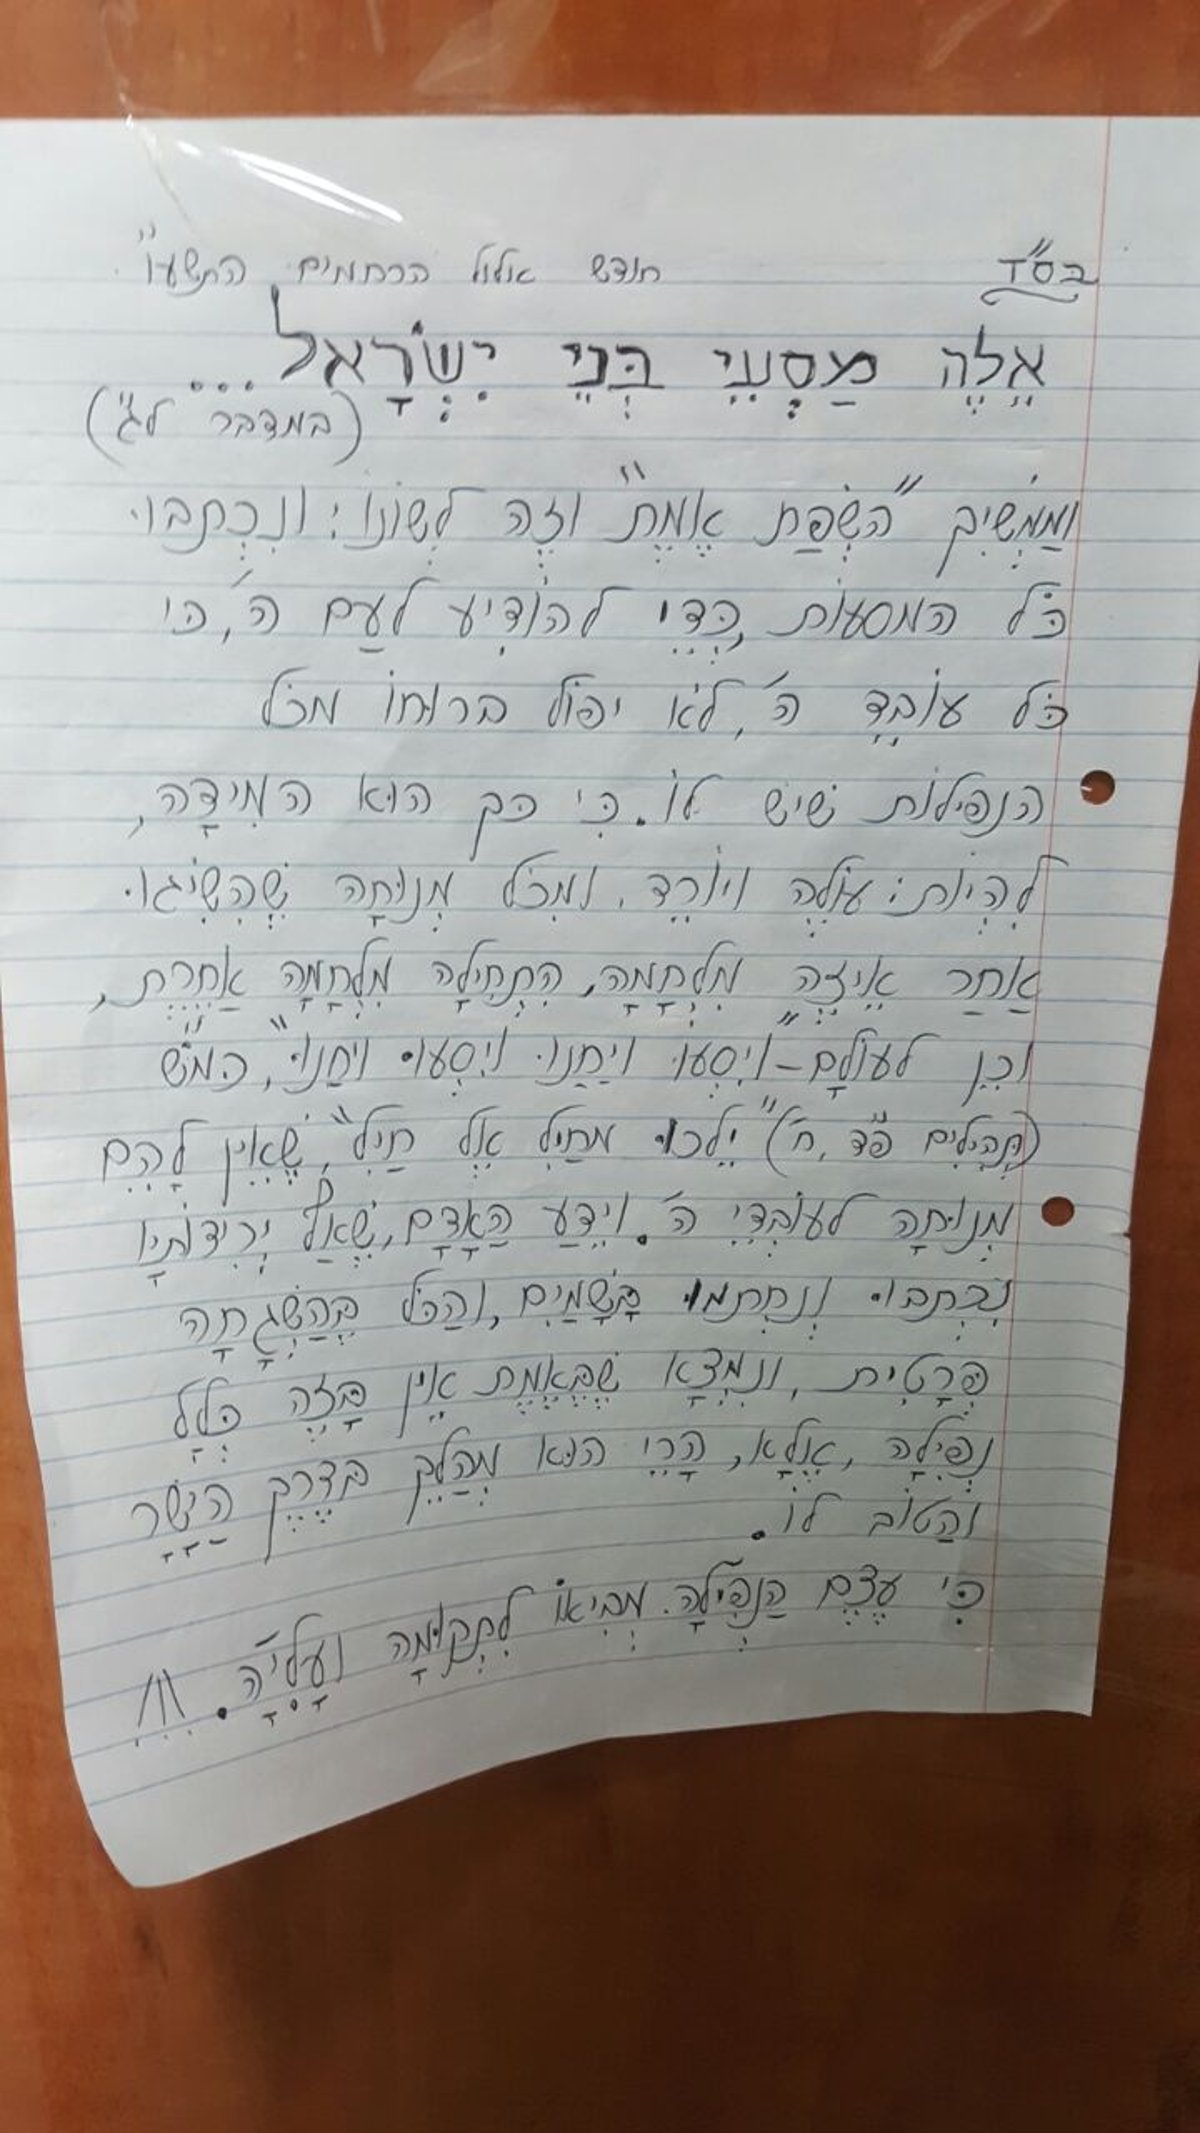 בס"ד חודש אלול הרחמים התשע"ו
אֵלֶה מַסְעֵי בְּנֵי יִשְׂרָאֵל...
(במדבר ל"ג)
וּמַמְשִׁיךְ "השְׂפַת אֱמֶת" וְזֶה לְשׁוֹנוֹ: וְנִכְתְבוּ
כֹּל המסעוֹת, כְּדֵי להוֹדִיע לעַם ה', כי
כֹּל עוֹבֵד ה', לֹא יפּוֹל ברוּחוֹ מכֹּל
הנפילוֹת שיש לוֹ. כִּי כך הוּא המִידָה,
לִהְיוֹת: עוֹלֶה ויוֹרֵד. וּמִכֹּל מְנוּחָה שֶׁהִשִׂיגוּ
אַחַר אֵיזֶה מִלְחָמָה, הִתְחִילָה מִלְחָמָה אַחֶרֶת,
וכֵן לעוֹלָם – "ויִסְעוּ ויַחֲנוּ ויִסְעוּ ויחַנוּ", כמ"ש
(תְּהִילִים פ"ד, ח') "יֵלכוּ מחַיִל אֶל חַיִל", שֶׁאֵין לָהֶם
מְנוּחָה לעוֹבְדֵי ה'. ויֵדַע הַאָדָם, שֶׁאַף יְרִידוֹתָיו
נִכְתְבוּ וְנחְתמוּ בָּשָׁמַיִם, והַכֹּל בְּהַשְׁגָחָה
פְּרָטִית, ונִמְצָא שֶׁבֶּאֱמֶת אֵין בָּזֶה כְּלָל
נְפִילָה, אֶלָא, הָרֵי הוּא מְהַלֵךְ בּדֶרֶךְ הַיָשָׁר
והַטוֹב לוֹ.
כִּי עֶצֶם הַנְפִּילָה. מְבִיאוֹ לִתְקוּמָה ועָלִיָה.